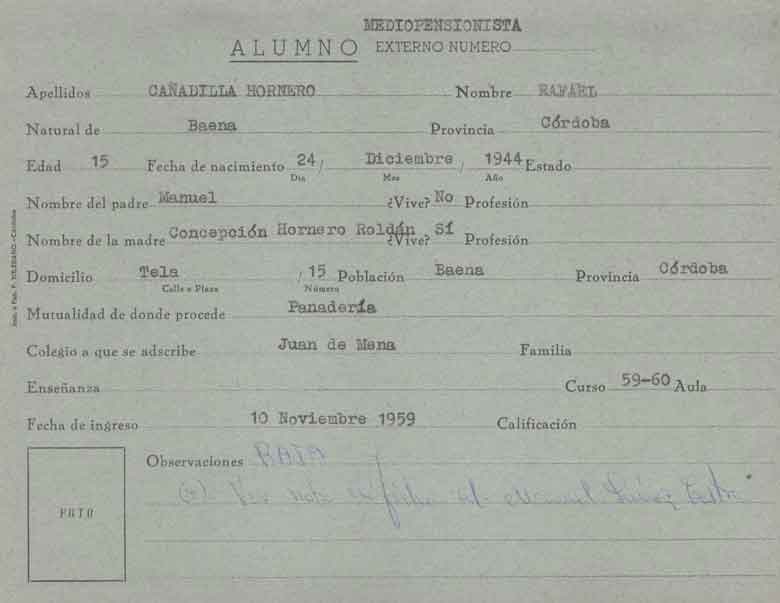 MEDIOPENSIONISTA
ALUMNO EXTERNO NUMERO
Apellidos CAÑADILLA HORNERO Nombre RAFAEL
Natural de Baena Provincia Córdoba
Edad 15 Fecha de nacimiento 24 / Diciembre / 1944 Estado
Dia Mes Año
Nombre del padre Manuel ¿Vive? No Profesión
Nombre de la madre Concepción Hornero Roldán ¿Vive? Sí Profesión
Domicilio Tela / 15 Población Baena Provincia Córdoba
Calle o Plaza Número
Mutualidad de donde procede Panadería
Colegio a que se adscribe Juan de Mena Familia
Enseñanza Curso 59-60 Aula
Fecha de ingreso 10 Noviembre 1959 Calificación
Observaciones BAJA
(*) Ver nota en ficha de Manuel
FOTO